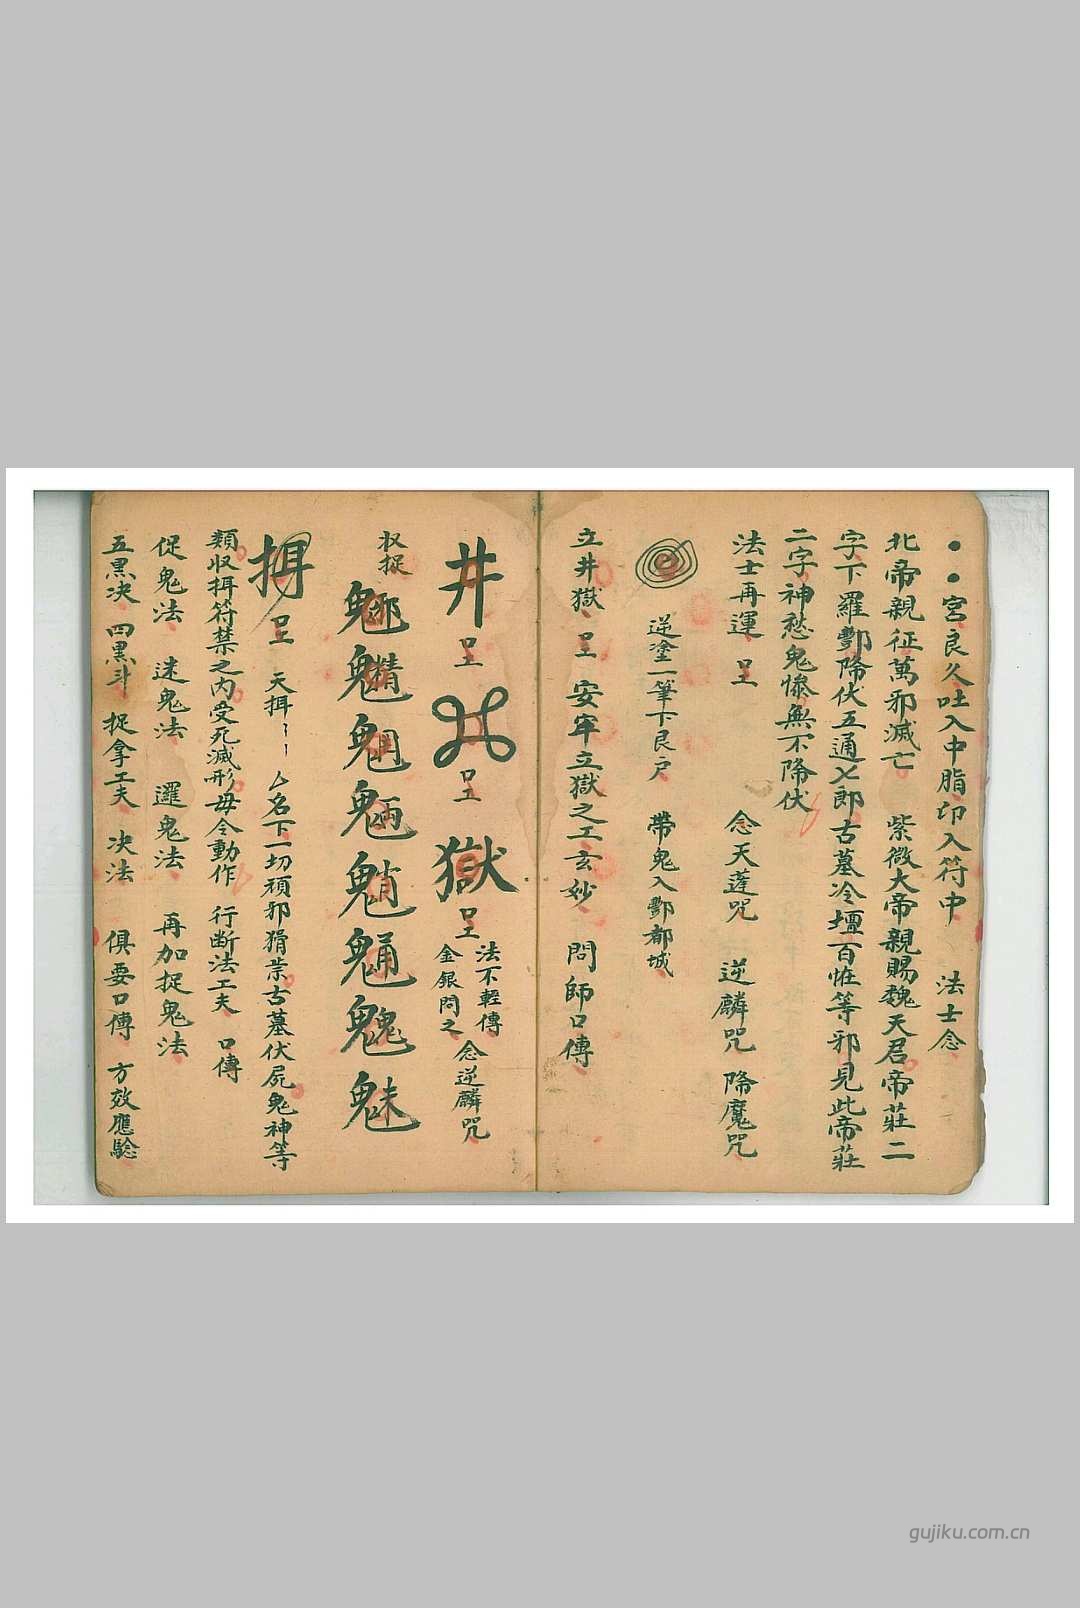 宮良久吐入中脂印入符中 法士念
北帝親征萬邪滅亡 紫微大帝親賜魏天君帝莊二
字下羅酆降伏五通七郎古墓冷壇百怪等邪見此帝莊
二字神愁鬼慘無不降伏
法士再運 呈 念天蓬咒 逆麟咒 降魔咒
逆塗一筆下艮户 帶鬼入酆都城
立井獄 呈 安牢立獄之工玄妙 問師口傳
井 呈 呈 獄 呈 法不輕傳 金銀問之 念逆麟咒
収捉 魅
挕 呈 天挕 厶名下一切頑邪猾祟古墓伏屍鬼神等
類収挕符禁之内受死滅形毋令動作 行断法工夫 口傳
促鬼法 迷鬼法 邏鬼法 再加捉鬼法
五黑决 四黑斗 捉拿工夫 决法 俱要口傳 方效應驗
gujiku.com.cn